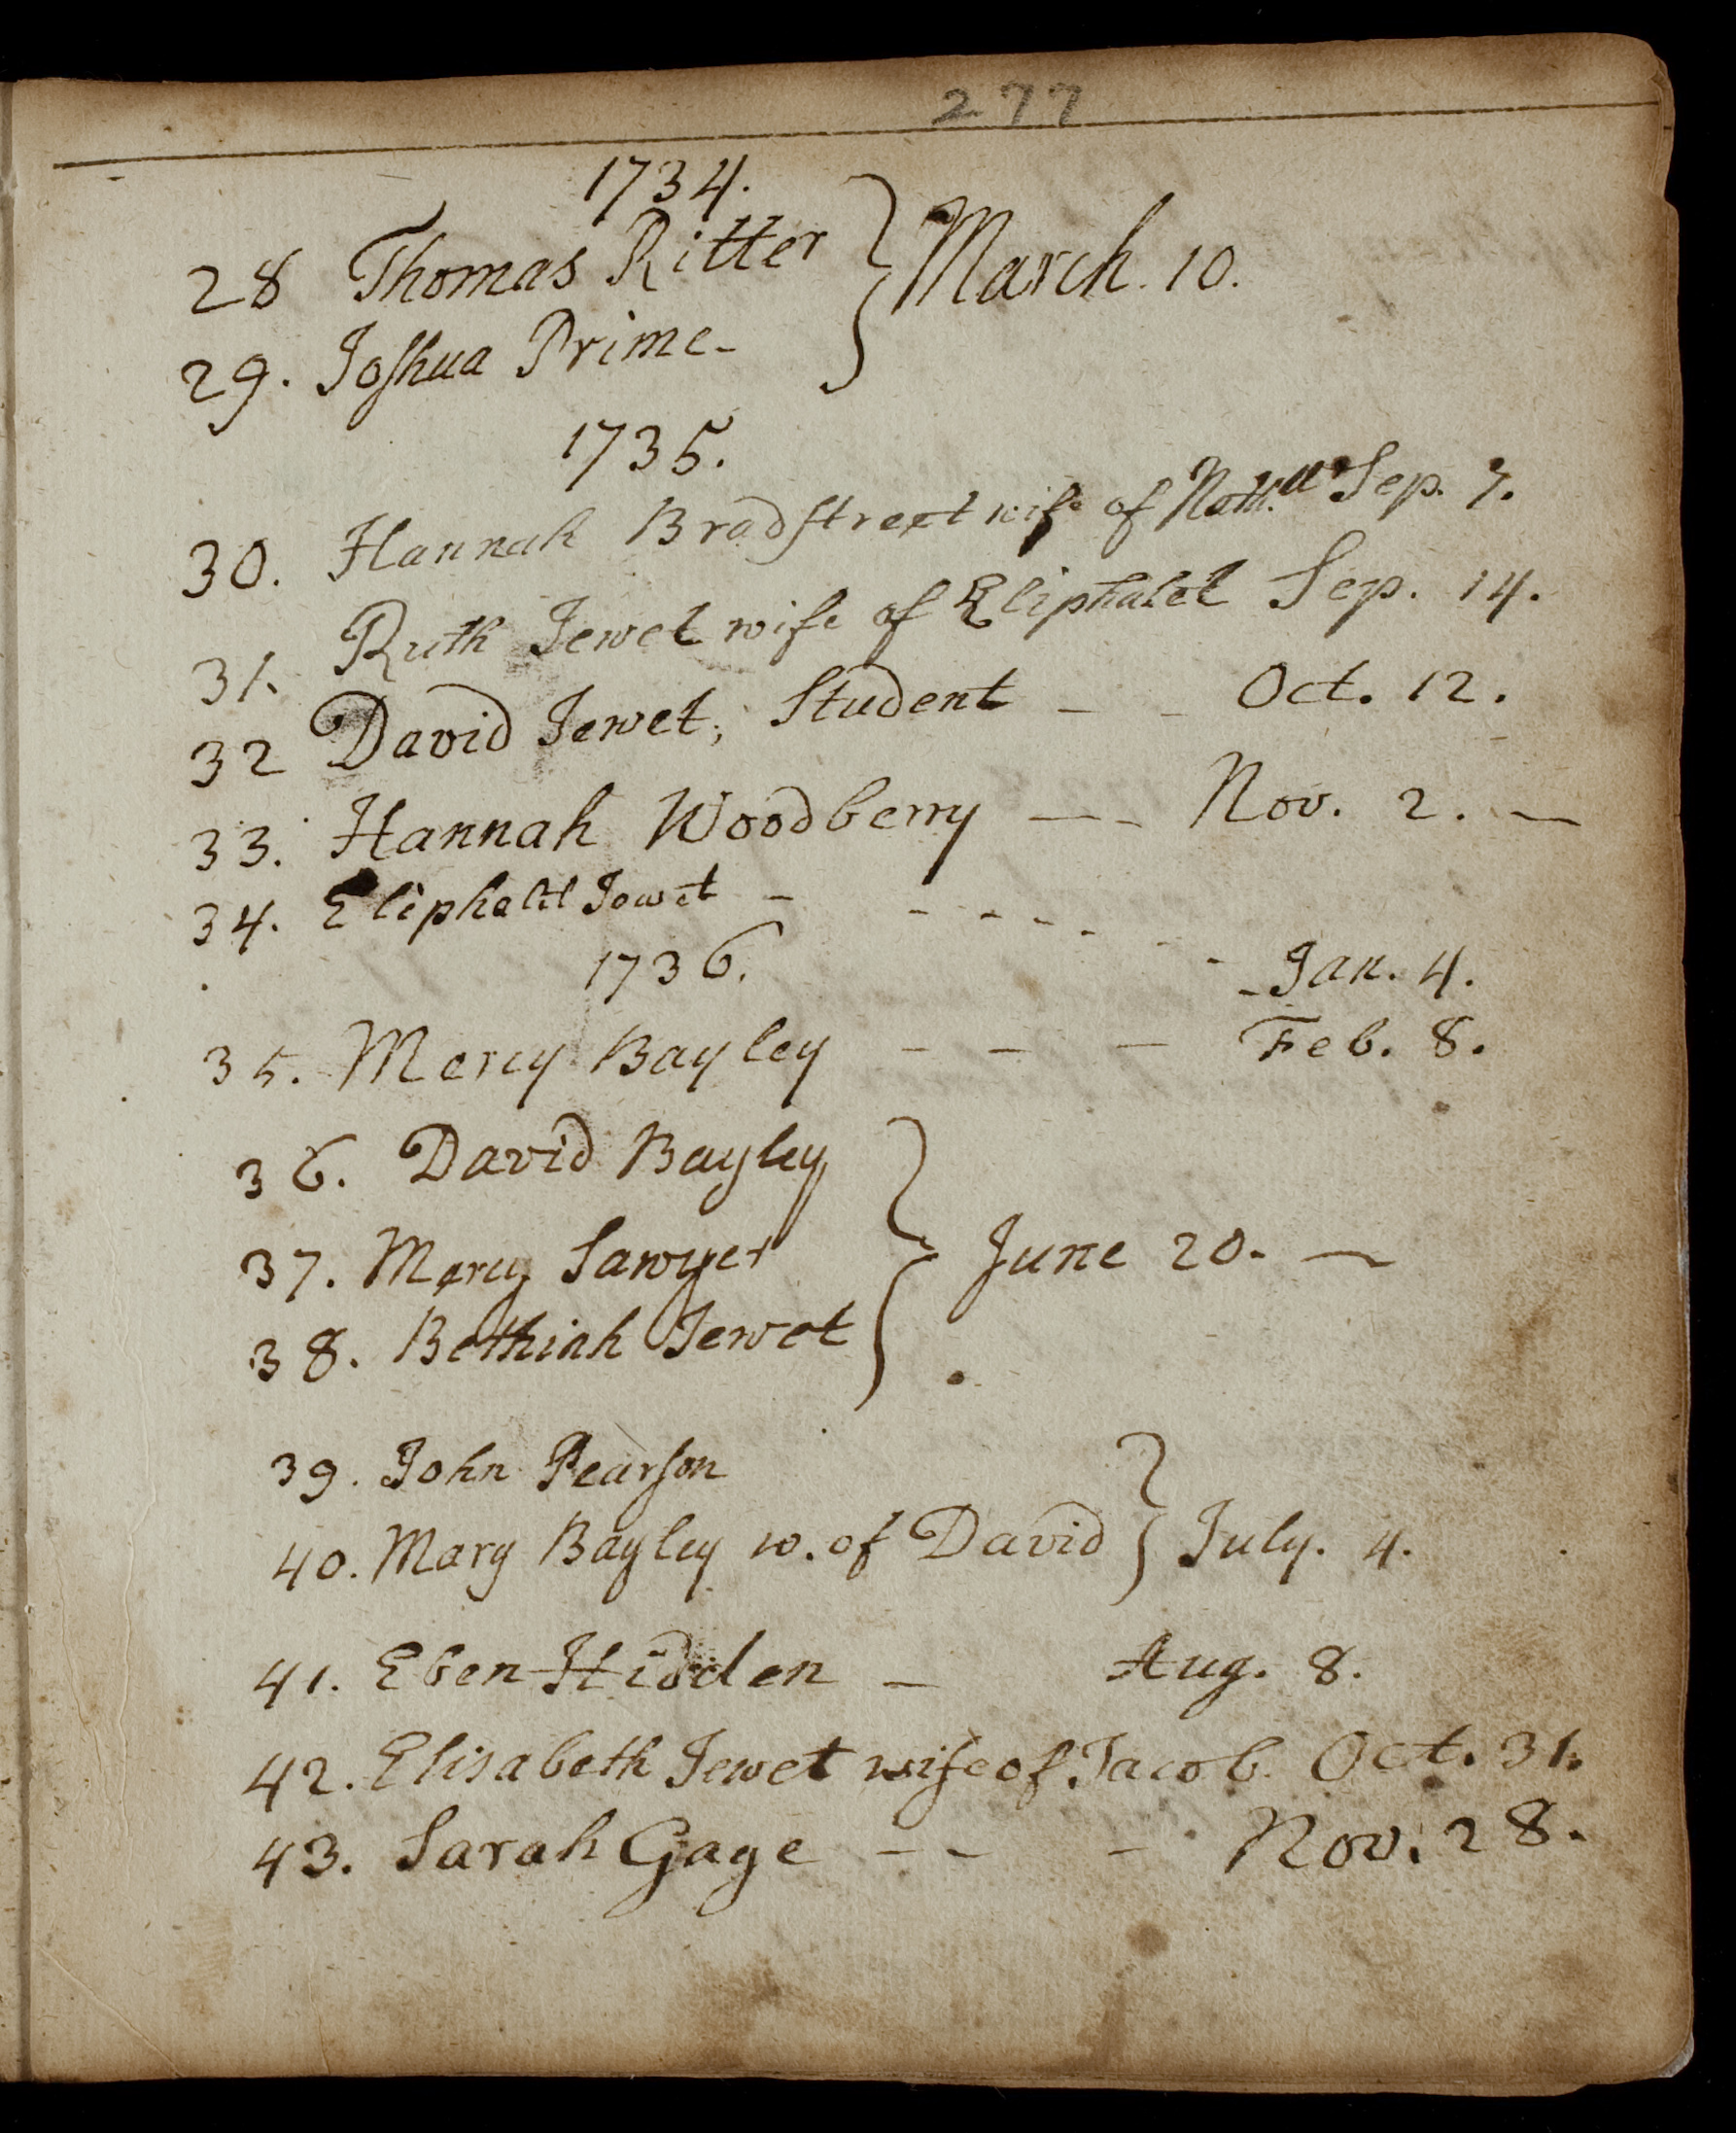 277
1734.
28 Thomas Ritter } March. 10.
29. Joshua Prime-
1735.
30. Hannah Bradstreet wife of Nath.ll Sep. 7.
31. Ruth Jewet wife of Eliphalet Sep. 14.
32 David Jewet, Student - - Oct. 12.
33. Hannah Woodberry - - - Nov. 2. -
34. Eliphalet Jewet - - - - - - - - Jan. 4.
1736.
35. Mercy Bayley - - - Feb. 8.
36. David Bayley
37. Mercy Sawyer } June 20. -
38. Bethiah Jewet
39. John Pearson
40. Mary Bayley w. of David } July. 4.
41. Eben Hidden - Aug. 8.
42. Elisabeth Jewet wife of Jacob. Oct. 31.
43. Sarah Gage - - - Nov. 28.